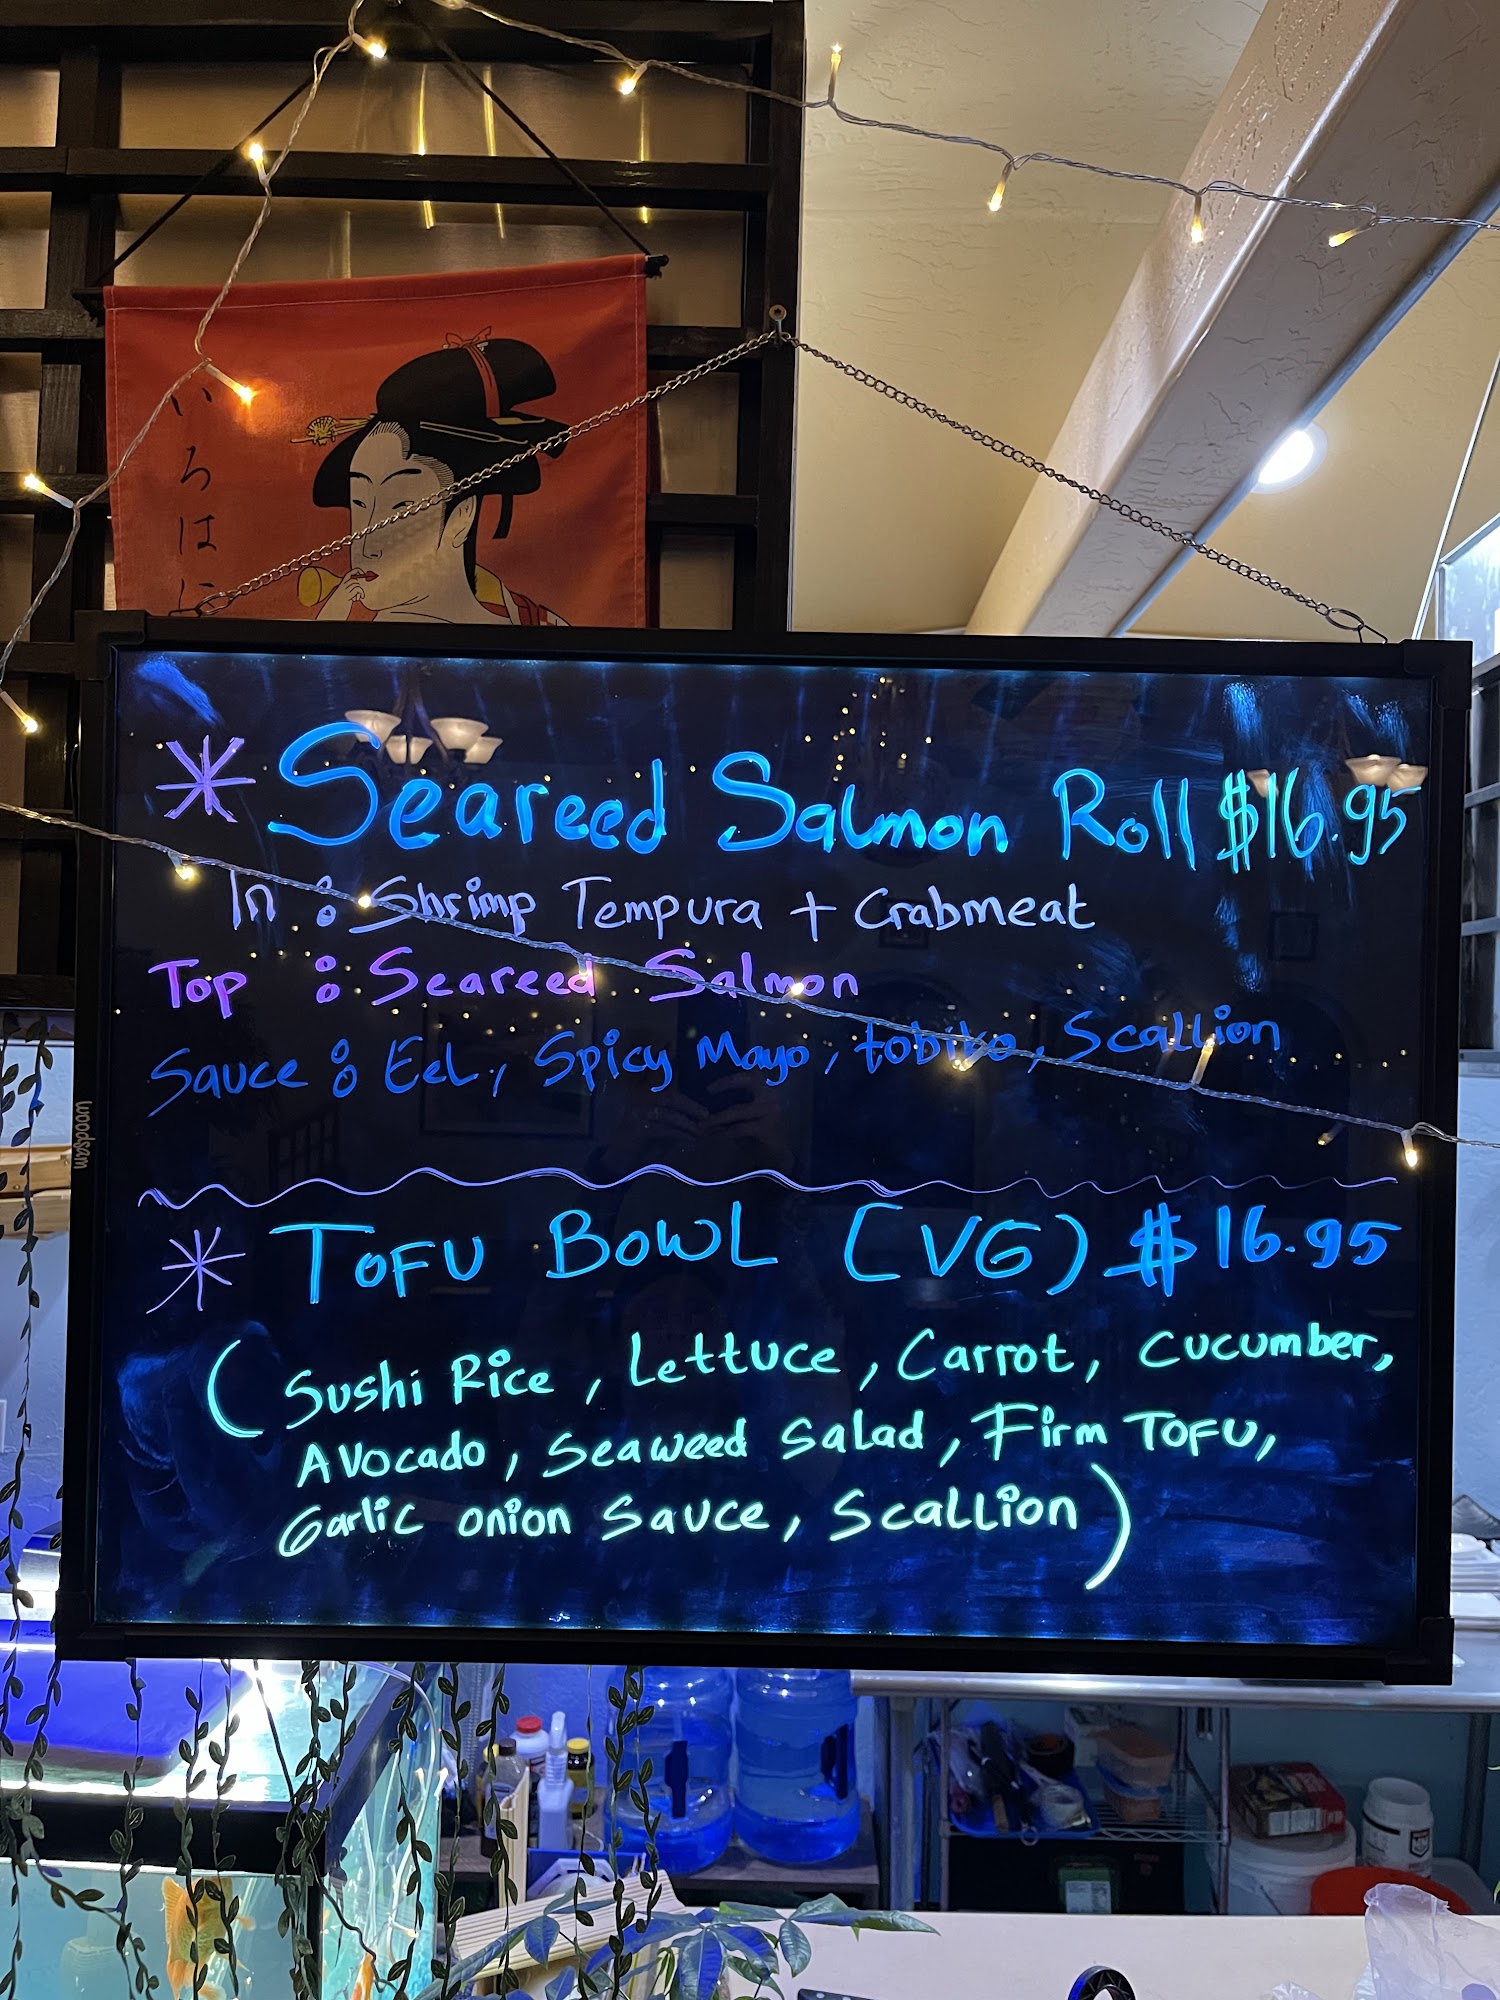 いろはに
* Seareed Salmon Roll $16.95
In : Shrimp Tempura + Crabmeat
Top : Seareed Salmon
Sauce : Eel, Spicy Mayo, tobiko, Scallion
woodsam
* TOFU BOWL (VG) $16.95
(Sushi Rice, Lettuce, Carrot, Cucumber,
Avocado, Seaweed Salad, Firm TOFU,
Garlic onion Sauce, Scallion)